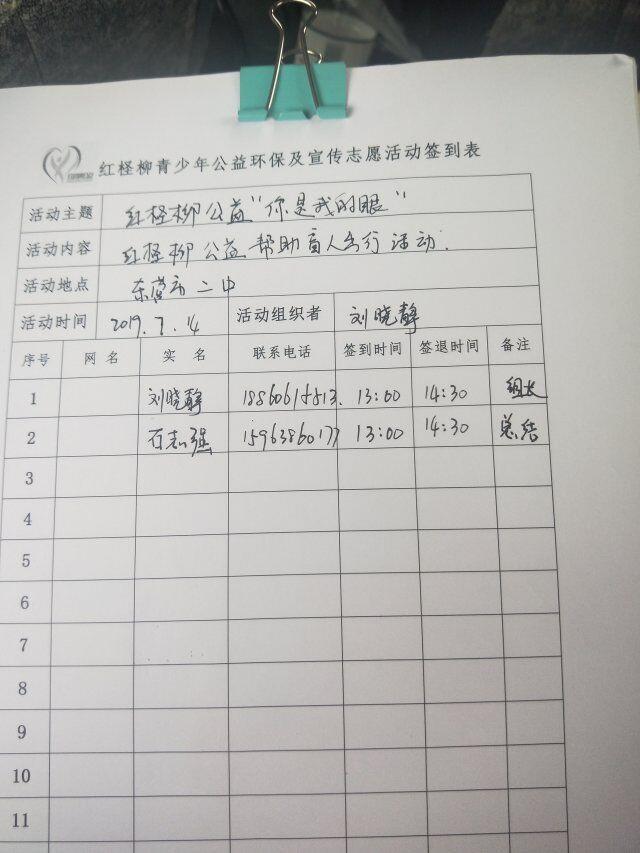 红柽柳青少年公益环保及宣传志愿活动签到表
活动主题 红柽柳公益“你是我的眼”
活动内容 红柽柳公益帮助盲人出行活动.
活动地点 东营市二中
活动时间 2019.7.14 活动组织者 刘晓静
序号 网名 实名 联系电话 签到时间 签退时间 备注
1 刘晓静 13:00 14:30 组长
2 石志强 15963860177 13:00 14:30 总结
3
4
5
6
7
8
9
10
11